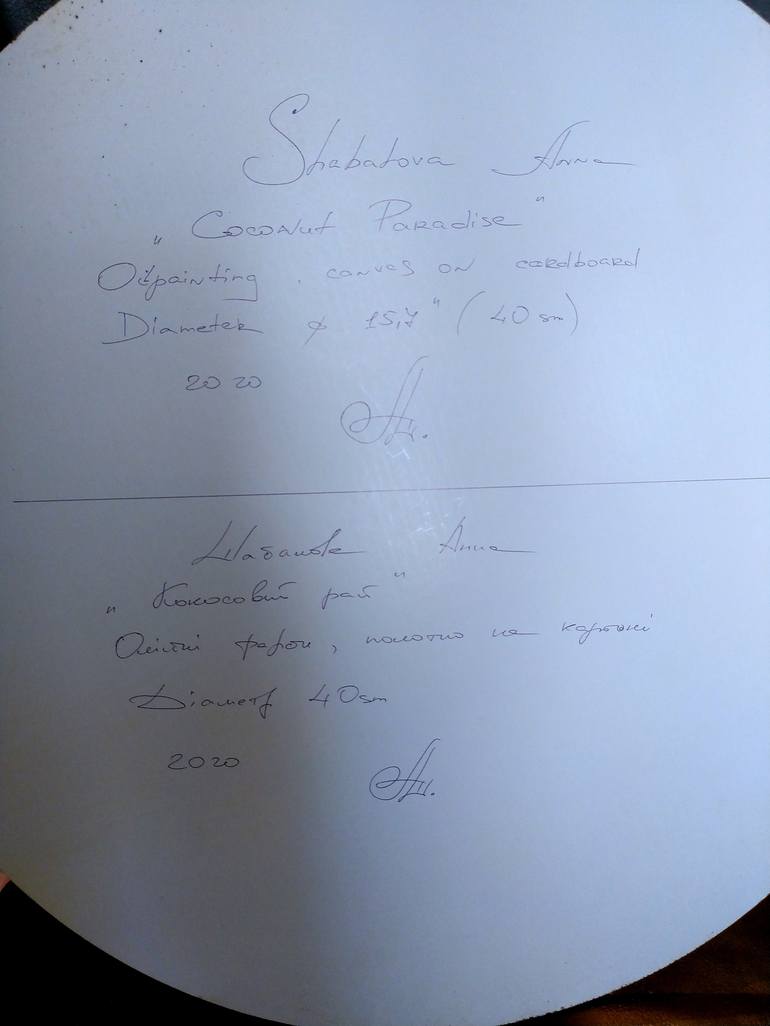 Shabatova Anna
„ Coconut Paradise "
Oilpainting, canvas on cardboard
Diameter ⌀ 15,7" ( 40 sm)
2020
Шабатова Анна
„ Кокосовий рай "
Олійні фарби, полотно на картоні
Діаметр 40sm
2020